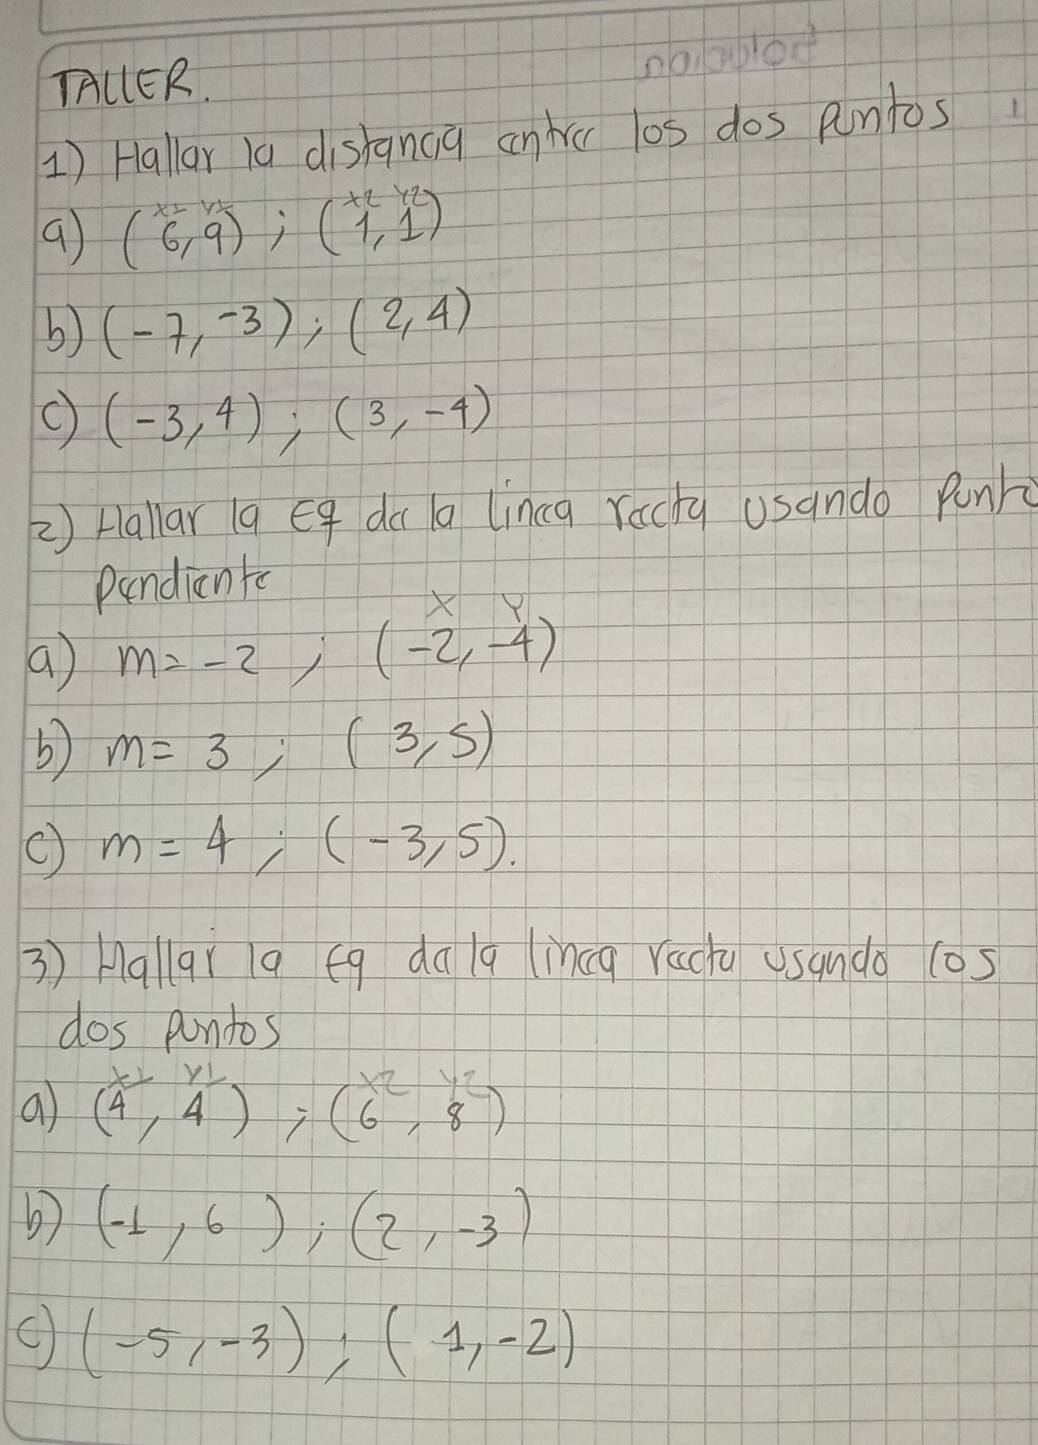 TALLER.
1) Hallar la distancia entre los dos puntos
x1 y1 x2 y2
a) (6,9) ; (1,1)
b) (-7,-3) ; (2,4)
c) (-3,4) ; (3,-4)
2) Hallar la Eq de la linea recta usando Punto
Pendiente
X Y
a) m=-2 ; (-2,-4)
b) m= 3 ; (3,5)
c) m = 4 ; (-3,5).
3) Hallar la Eq de la linea recta usando los
dos puntos
x1 y1 x2 y2
a) (4, 4) ; (6, 8)
b) (-1, 6) ; (2, -3)
c) (-5,-3) ; (1,-2)